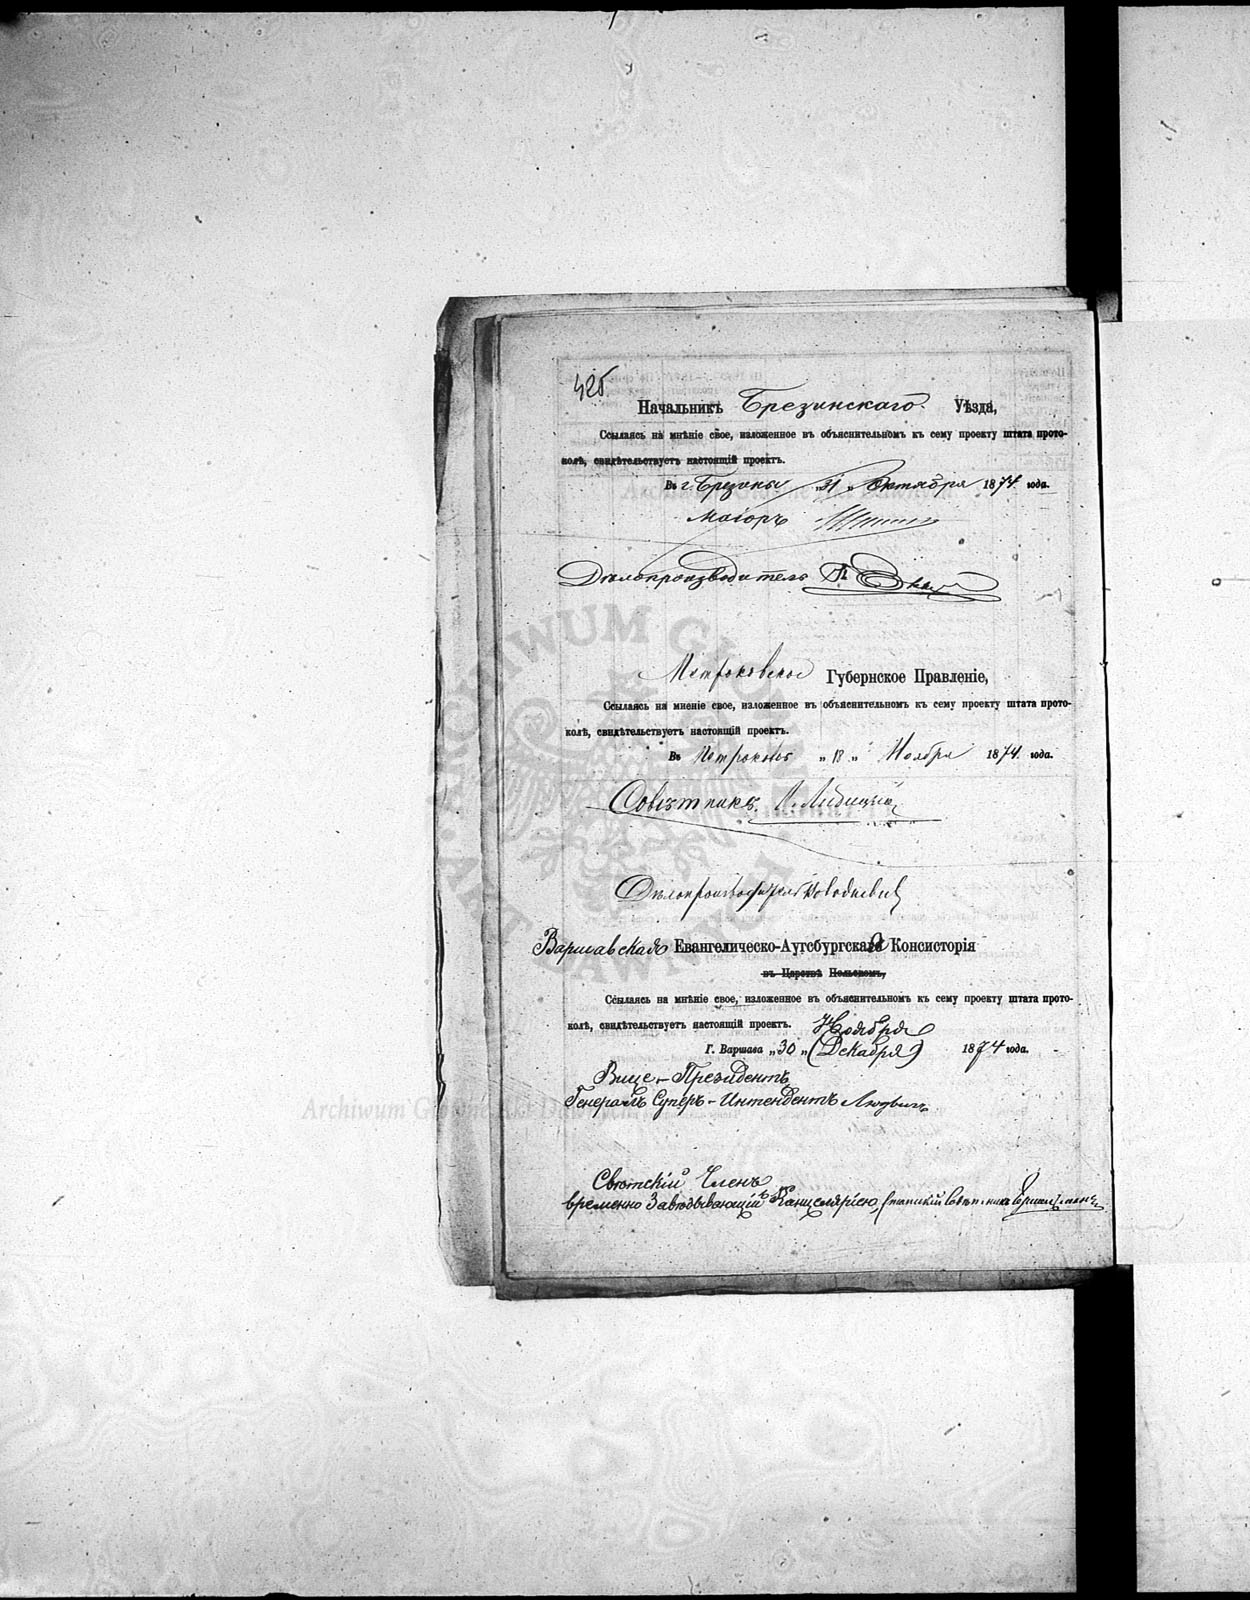 425
Начальникъ Брезинскаго Уѣзда,
Ссылаясь на мнѣніе свое, изложенное въ объяснительномъ къ сему проекту штата прото-
колѣ, свидѣтельствуетъ настоящій проектъ.
Въ г. Брезины „ 31 „ Октября 1874 года.
Маіоръ
Дѣлопроизводитель
Петроковское Губернское Правленіе,
Ссылаясь на мненіе свое, изложенное въ объяснительномъ къ сему проекту штата прото-
колѣ, свидѣтельствуетъ настоящій проектъ.
Въ Петроковѣ „ 13 „ Ноября 1874 года.
Совѣтникъ
Дѣлопроизводитель
Варшавская Евангелическо-Аугсбургская Консисторія
въ Царствѣ Польскомъ,
Ссылаясь на мнѣніе свое, изложенное въ объяснительномъ къ сему проекту штата прото-
колѣ, свидѣтельствуетъ настоящій проектъ. Ноября
Г. Варшава „ 30 „ (Декабря) 1874 года.
Вице-Президентъ
Генералъ Суперъ-Интендентъ Людвигъ
Свѣтскій Членъ
временно Завѣдывающій Канцеляріею,
ARCHIWUM GŁÓWNE AKT DAWNYCH
Archiwum Główne Akt Dawnych